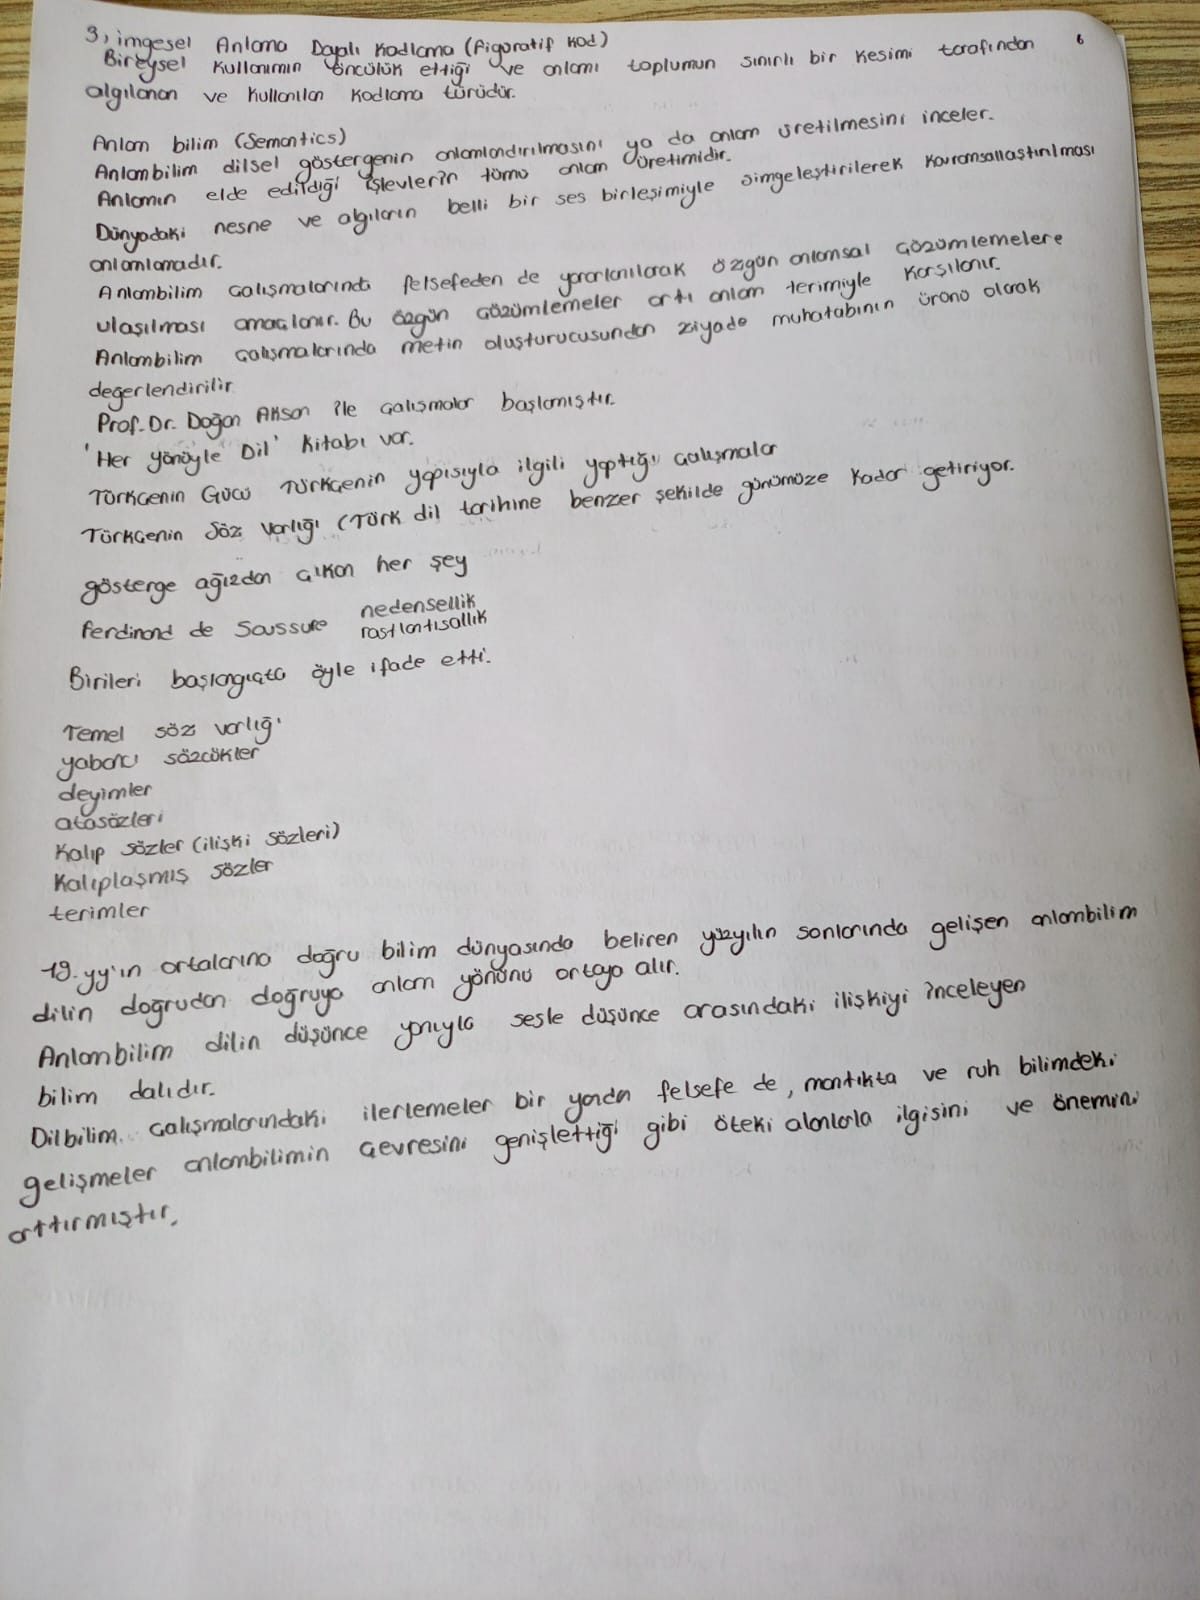 3, imgesel Anlama Dayalı Kodlama (figüratif kod)
6
Bireysel kullanımın öncülük ettiği ve anlamı toplumun sınırlı bir kesimi tarafından
algılanan ve kullanılan kodlama türüdür.
Anlam bilim (Semantics)
Anlambilim dilsel göstergenin anlamlandırılmasını ya da anlam üretilmesini inceler.
Anlamın elde edildiği işlevlerin tümü anlam üretimidir.
Dünyadaki nesne ve algıların belli bir ses birleşimiyle simgeleştirilerek kavramsallaştırılması
anlamlamadır.
Anlambilim çalışmalarında felsefeden de yararlanılarak özgün anlamsal çözümlemelere
ulaşılması amaçlanır. Bu özgün çözümlemeler artı anlam terimiyle karşılanır.
Anlambilim çalışmalarında metin oluşturucusundan ziyade muhatabının ürünü olarak
değerlendirilir
Prof. Dr. Doğan Aksan ile çalışmalar başlamıştır.
'Her yönüyle Dil' kitabı var.
Türkçenin Gücü Türkçenin yapısıyla ilgili yaptığı çalışmalar
Türkçenin Söz Varlığı (Türk dil tarihine benzer şekilde günümüze kadar getiriyor.
gösterge ağızdan çıkan her şey
ferdinand de Saussure nedensellik
rastlantısallık
Birileri başlangıçta öyle ifade etti.
Temel söz varlığı
yabancı sözcükler
deyimler
atasözleri
Kalıp sözler (ilişki sözleri)
Kalıplaşmış sözler
terimler
19. yy'ın ortalarına doğru bilim dünyasında beliren yüzyılın sonlarında gelişen anlambilim
dilin doğrudan doğruya anlam yönünü ortaya alır.
Anlambilim dilin düşünce yanıyla sesle düşünce arasındaki ilişkiyi inceleyen
bilim dalıdır.
Dilbilim çalışmalarındaki ilerlemeler bir yandan felsefe de, mantıkta ve ruh bilimdeki
gelişmeler anlambilimin çevresini genişlettiği gibi öteki alanlarla ilgisini ve önemini
arttırmıştır.